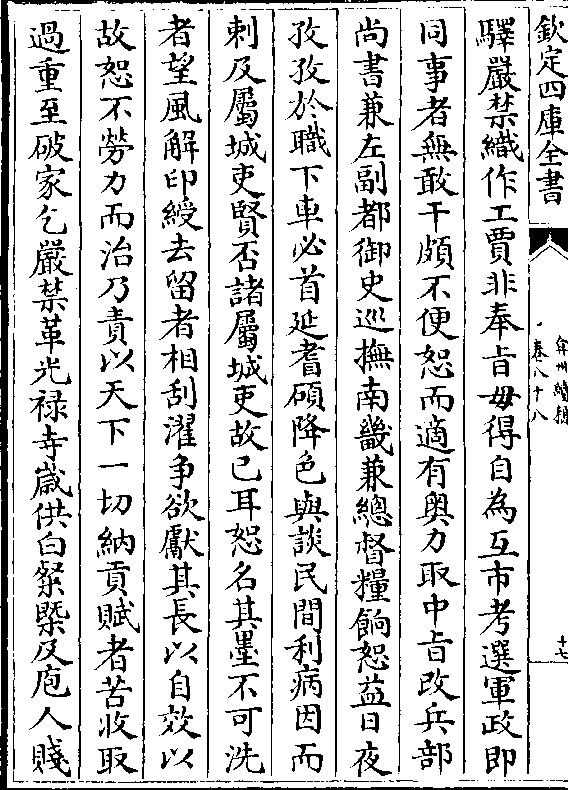 欽定四庫全書
弇州續稿
卷八十八
十七
驛嚴禁織作工賈非奉旨毋得自為互市考選軍政即
同事者無敢干頗不便恕而適有奧力取中旨改兵部
尚書兼左副都御史巡撫南畿兼總督糧餉恕益日夜
孜孜於職下車必首延耆碩降色與談民間利病因而
刺及屬城吏賢否諸屬城吏故已耳恕名其墨不可洗
者望風解印綬去留者相刮濯争欲獻其長以自效以
故恕不勞力而治乃責以天下一切納貢賦者苦收取
過重至破家乞嚴禁革光禄寺嵗供白粲槩及庖人賤